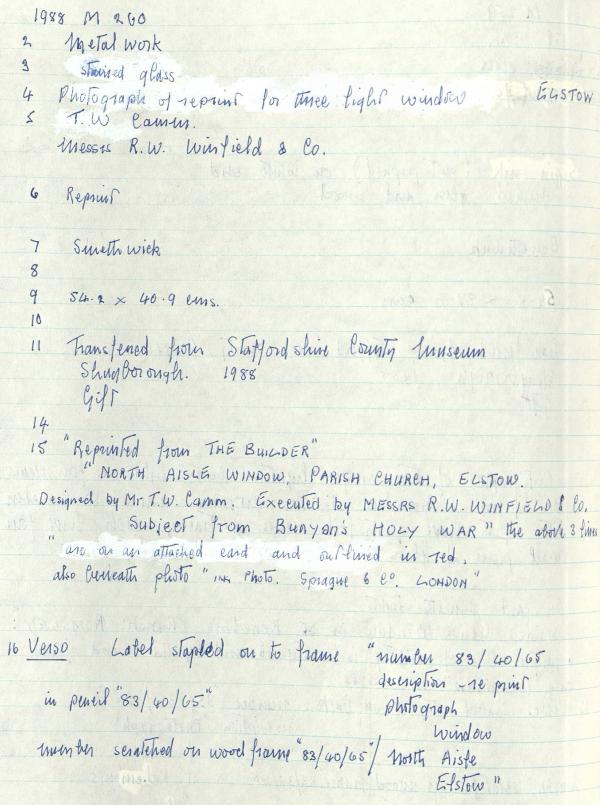 1988 M 260
2 Metalwork
3 stained glass
4 Photograph of reprint for three light window ELSTOW
5 T.W Camm.
Messrs R.W. Winfield & Co.
6 Reprint
7 Smethwick
8
9 54.2 x 40.9 cms.
10
11 Transferred from Staffordshire County Museum
Shugborough. 1988
Gift
14
15 "Reprinted from THE BUILDER"
"NORTH AISLE WINDOW, PARISH CHURCH, ELSTOW.
Designed by Mr. T.W. Camm. Executed by MESSRS R.W. WINFIELD & Co.
Subject from Bunyan's HOLY WAR" the above 3 lines
"are on an attached card and outlined in red.
also beneath photo "INK PHOTO. Sprague & Co. LONDON"
16 Verso Label stapled on to frame "number 83/40/65
description - re print
in pencil "83/40/65" photograph
window
number scratched on wood frame "83/40/65"/ North Aisle
Elstow"